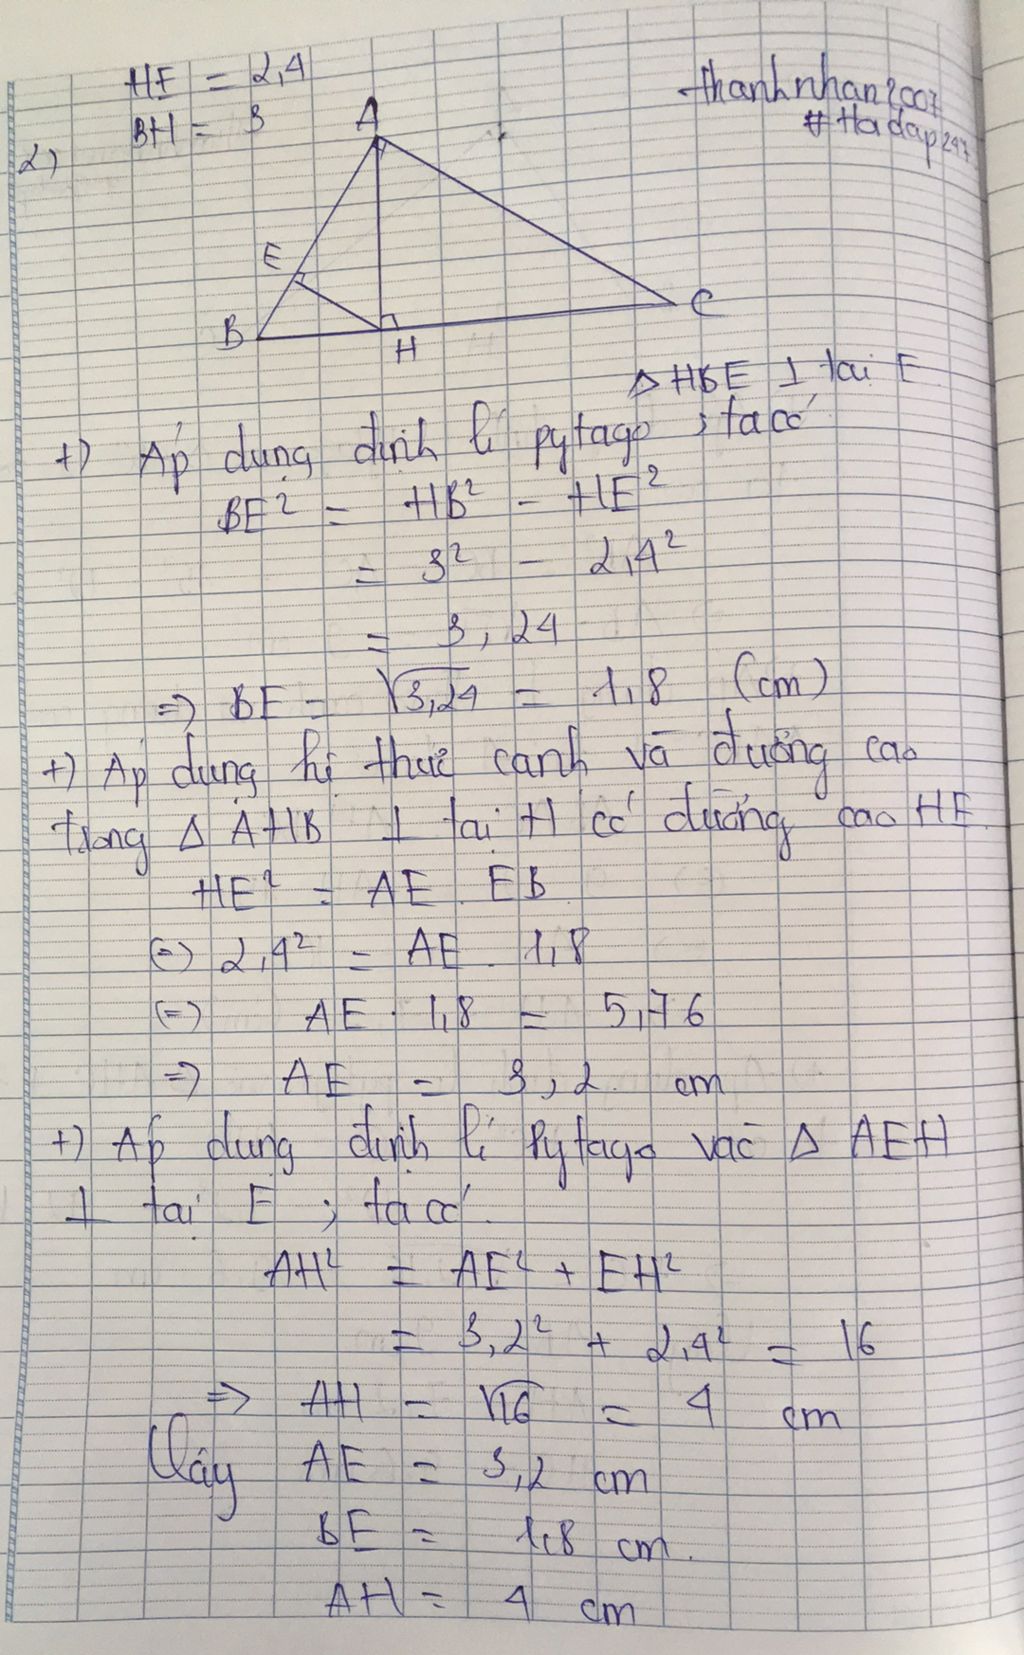 HE = 2,4
BH = 3
thanhnhan2007
#Hoidap247
2)
A
E
B
H
C
Δ HBE ⊥ tại E
+) Áp dụng định lí pytago ; ta có
BE² = HB² - HE²
= 3² - 2,4²
= 3,24
=> BE = √3,24 = 1,8 (cm)
+) Áp dụng hệ thức cạnh và đường cao
trong Δ AHB ⊥ tại H có đường cao HE
HE² = AE . EB
(=) 2,4² = AE . 1,8
(=) AE . 1,8 = 5,76
=> AE = 3,2 cm
+) Áp dụng định lí Pytago vào Δ AEH
⊥ tại E ; ta có
AH² = AE² + EH²
= 3,2² + 2,4² = 16
=> AH = √16 = 4 cm
Vậy AE = 3,2 cm
BE = 1,8 cm.
AH = 4 cm